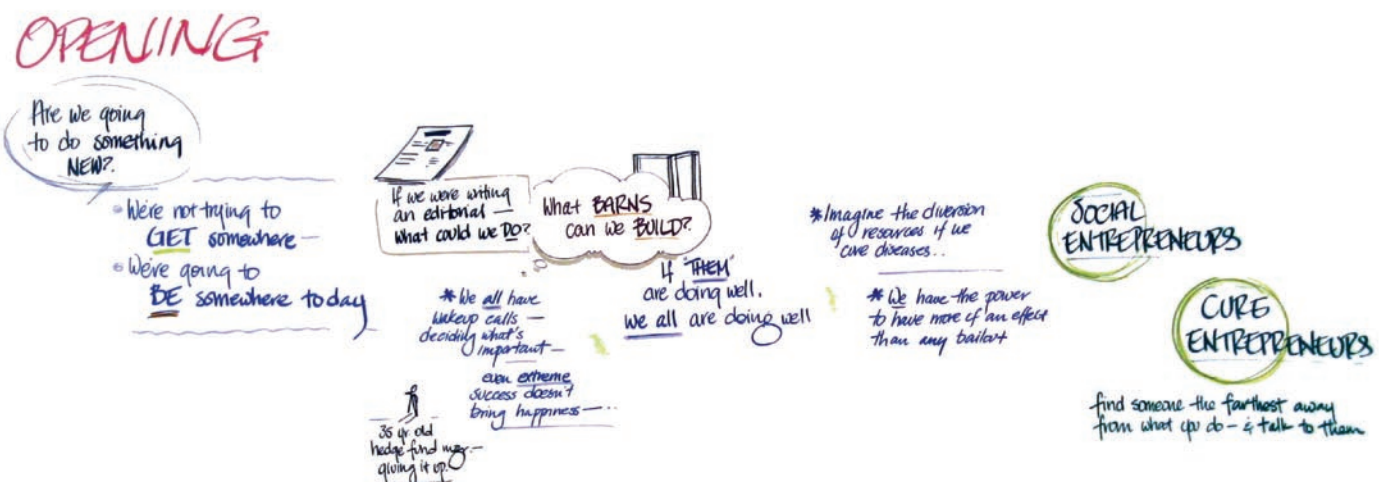 OPENING
Are we going
to do something
NEW?
We're not trying to
GET somewhere —
We're going to
BE somewhere today
If we were writing
an editorial —
what could we DO?
What BARNS
can we BUILD?
* We all have
wakeup calls —
deciding what's
important —
even extreme
success doesn't
bring happiness — ..
35 yr old
hedge fund mgr. —
giving it up.
If "THEM"
are doing well,
we all are doing well
* Imagine the diversion
of resources if we
cure diseases..
* We have the power
to have more of an effect
than any bailout
SOCIAL
ENTREPRENEURS
CURE
ENTREPRENEURS
find someone the farthest away
from what you do — & talk to them